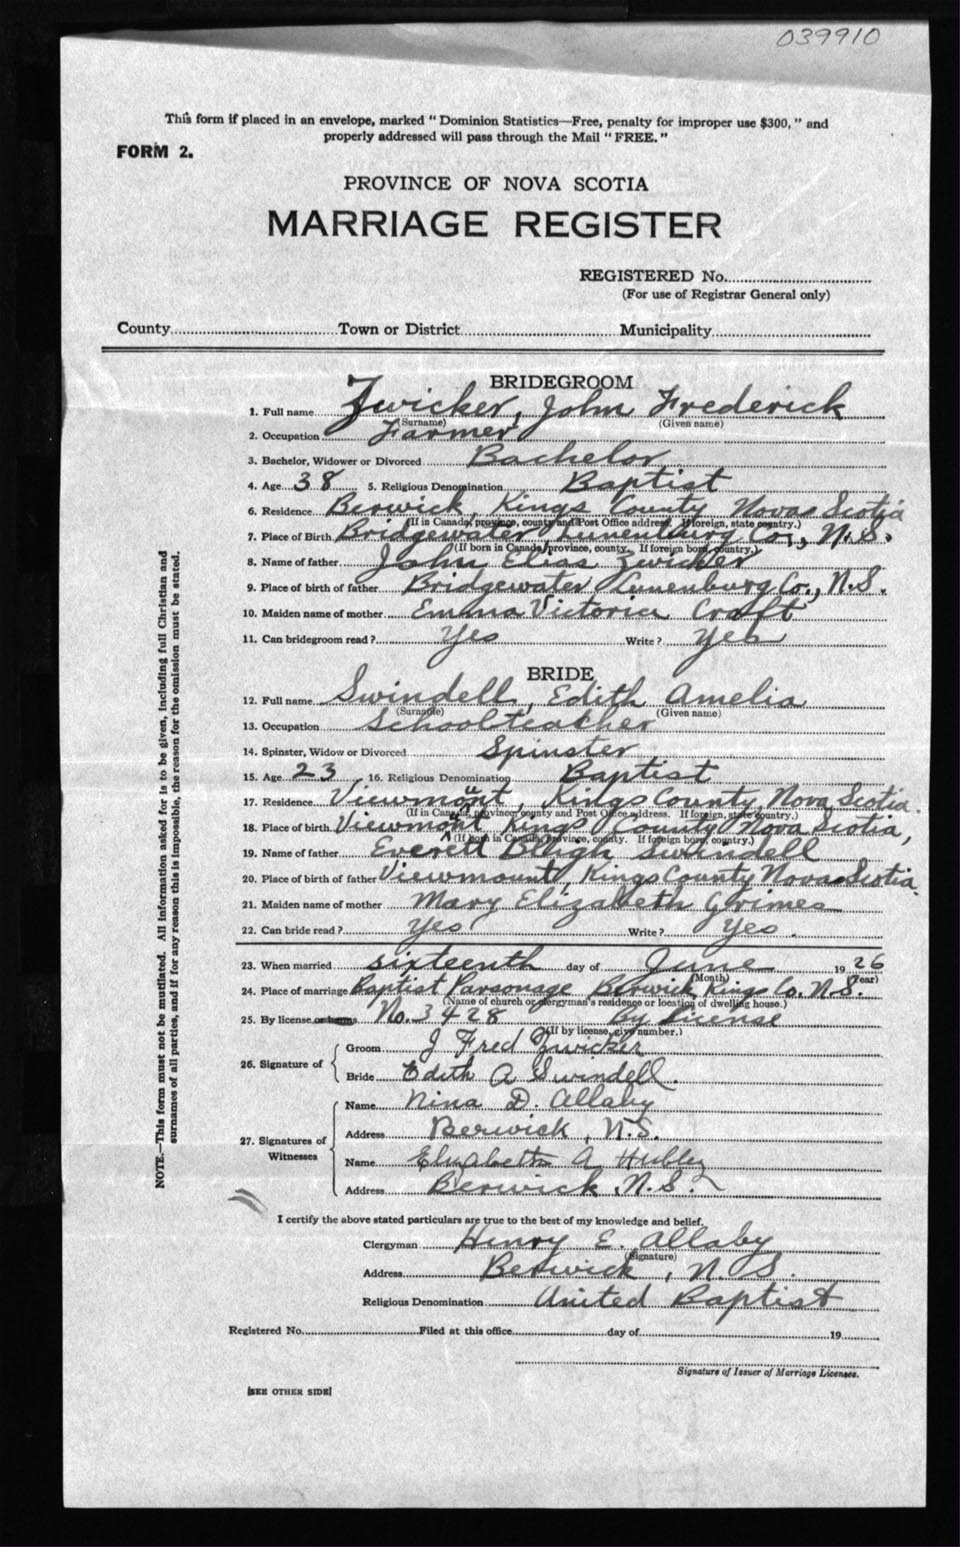 039910
This form if placed in an envelope, marked "Dominion Statistics—Free, penalty for improper use $300," and
properly addressed will pass through the Mail "FREE."
FORM 2.
PROVINCE OF NOVA SCOTIA
MARRIAGE REGISTER
REGISTERED No.
(For use of Registrar General only)
County Town or District Municipality
BRIDEGROOM
1. Full name Zwicker, John Frederick
(Surname) (Given name)
2. Occupation Farmer
3. Bachelor, Widower or Divorced Bachelor
4. Age 38 5. Religious Denomination Baptist
6. Residence Berwick, Kings County Nova Scotia
(If in Canada, province, county and Post Office address. If foreign, state country.)
7. Place of Birth Bridgewater, Lunenburg Co., N.S.
(If born in Canada, province, county. If foreign born, country.)
8. Name of father John Elias Zwicker
9. Place of birth of father Bridgewater Lunenburg Co., N.S.
10. Maiden name of mother Emma Victoria Craft
11. Can bridegroom read? Yes Write? Yes
BRIDE
12. Full name Swindell, Edith Amelia
(Surname) (Given name)
13. Occupation Schoolteacher
14. Spinster, Widow or Divorced Spinster
15. Age 23 16. Religious Denomination Baptist
17. Residence Viewmount, Kings County, Nova Scotia.
(If in Canada, province, county and Post Office address. If foreign, state country.)
18. Place of birth Viewmount Kings County Nova Scotia,
(If born in Canada, province, county. If foreign born, country.)
19. Name of father Everett Bligh Swindell
20. Place of birth of father Viewmount, Kings County Nova Scotia.
21. Maiden name of mother Mary Elizabeth Grimes
22. Can bride read? Yes Write? Yes.
23. When married sixteenth day of June 1926
(Month) (Year)
24. Place of marriage Baptist Parsonage Berwick Kings Co. N.S.
(Name of church or clergyman's residence or location of dwelling house.)
25. By license or banns No. 3428 By License
(If by license, give number.)
26. Signature of
Groom J Fred Zwicker
Bride Edith A Swindell.
27. Signatures of Witnesses
Name Nina D. Allaby
Address Berwick, N.S.
Name Elizabeth A Hubley
Address Berwick, N.S.
I certify the above stated particulars are true to the best of my knowledge and belief.
Clergyman Henry E. Allaby
(Signature)
Address Berwick, N.S.
Religious Denomination United Baptist
Registered No. Filed at this office day of 19
Signature of Issuer of Marriage Licenses.
[SEE OTHER SIDE]
NOTE.—This form must not be mutilated. All information asked for is to be given, including full Christian and
surnames of all parties, and if for any reason this is impossible, the reason for the omission must be stated.